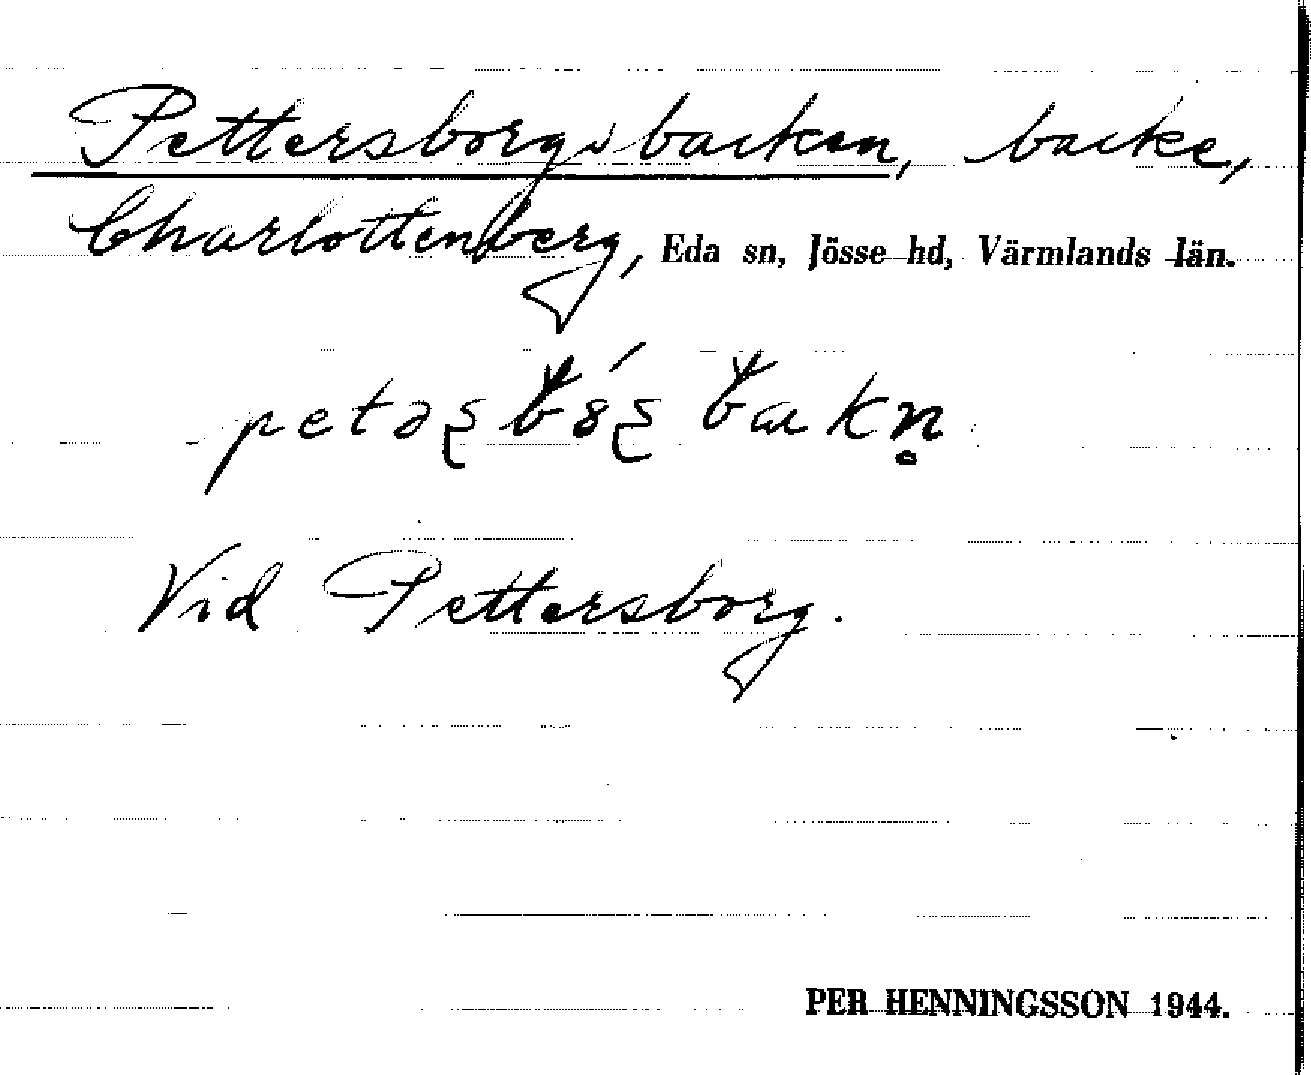 Pettersborgsbacken, backe,
Charlottenberg, Eda sn, Jösse hd, Värmlands län.
Vid Pettersborg.
PER HENNINGSSON 1944.